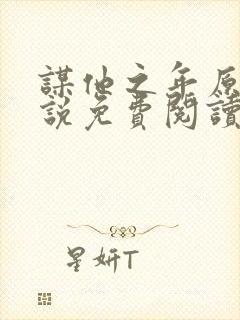 謀他之年原
說免費閱讀
星妍T